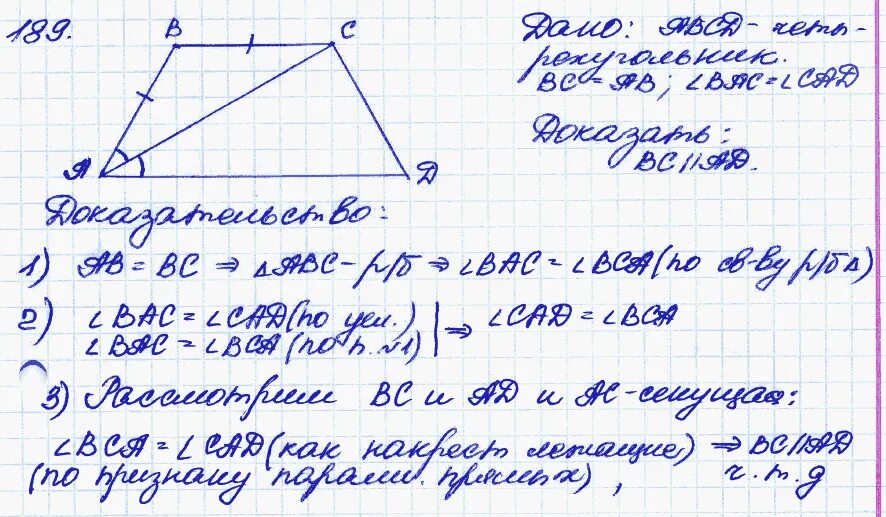 189.
B
C
A
D
Дано: ABCD - четы-
рехугольник.
BC = AB; ∠BAC = ∠CAD
Доказать:
BC || AD.
Доказательство:
1) AB = BC ⇒ △ABC - р/б ⇒ ∠BAC = ∠BCA (по св-ву р/б △)
2) ∠BAC = ∠CAD (по усл.) | ⇒ ∠CAD = ∠BCA
∠BAC = ∠BCA (по п. №1)
3) Рассмотрим BC и AD и AC - секущая:
∠BCA = ∠CAD (как накрест лежащие) ⇒ BC || AD
(по признаку паралл. прямых), ч.т.д